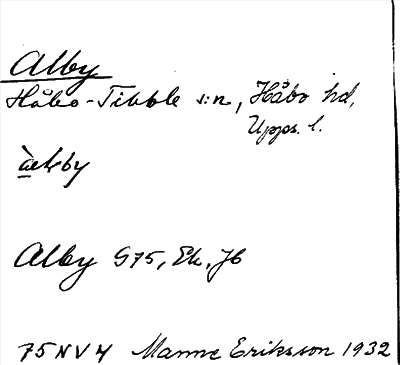 Alby
Håbo-Tibble s:n, Håbo hd,
Upps. l.
Alby G75, Ek, Jb
75 NV 4 Manne Eriksson 1932